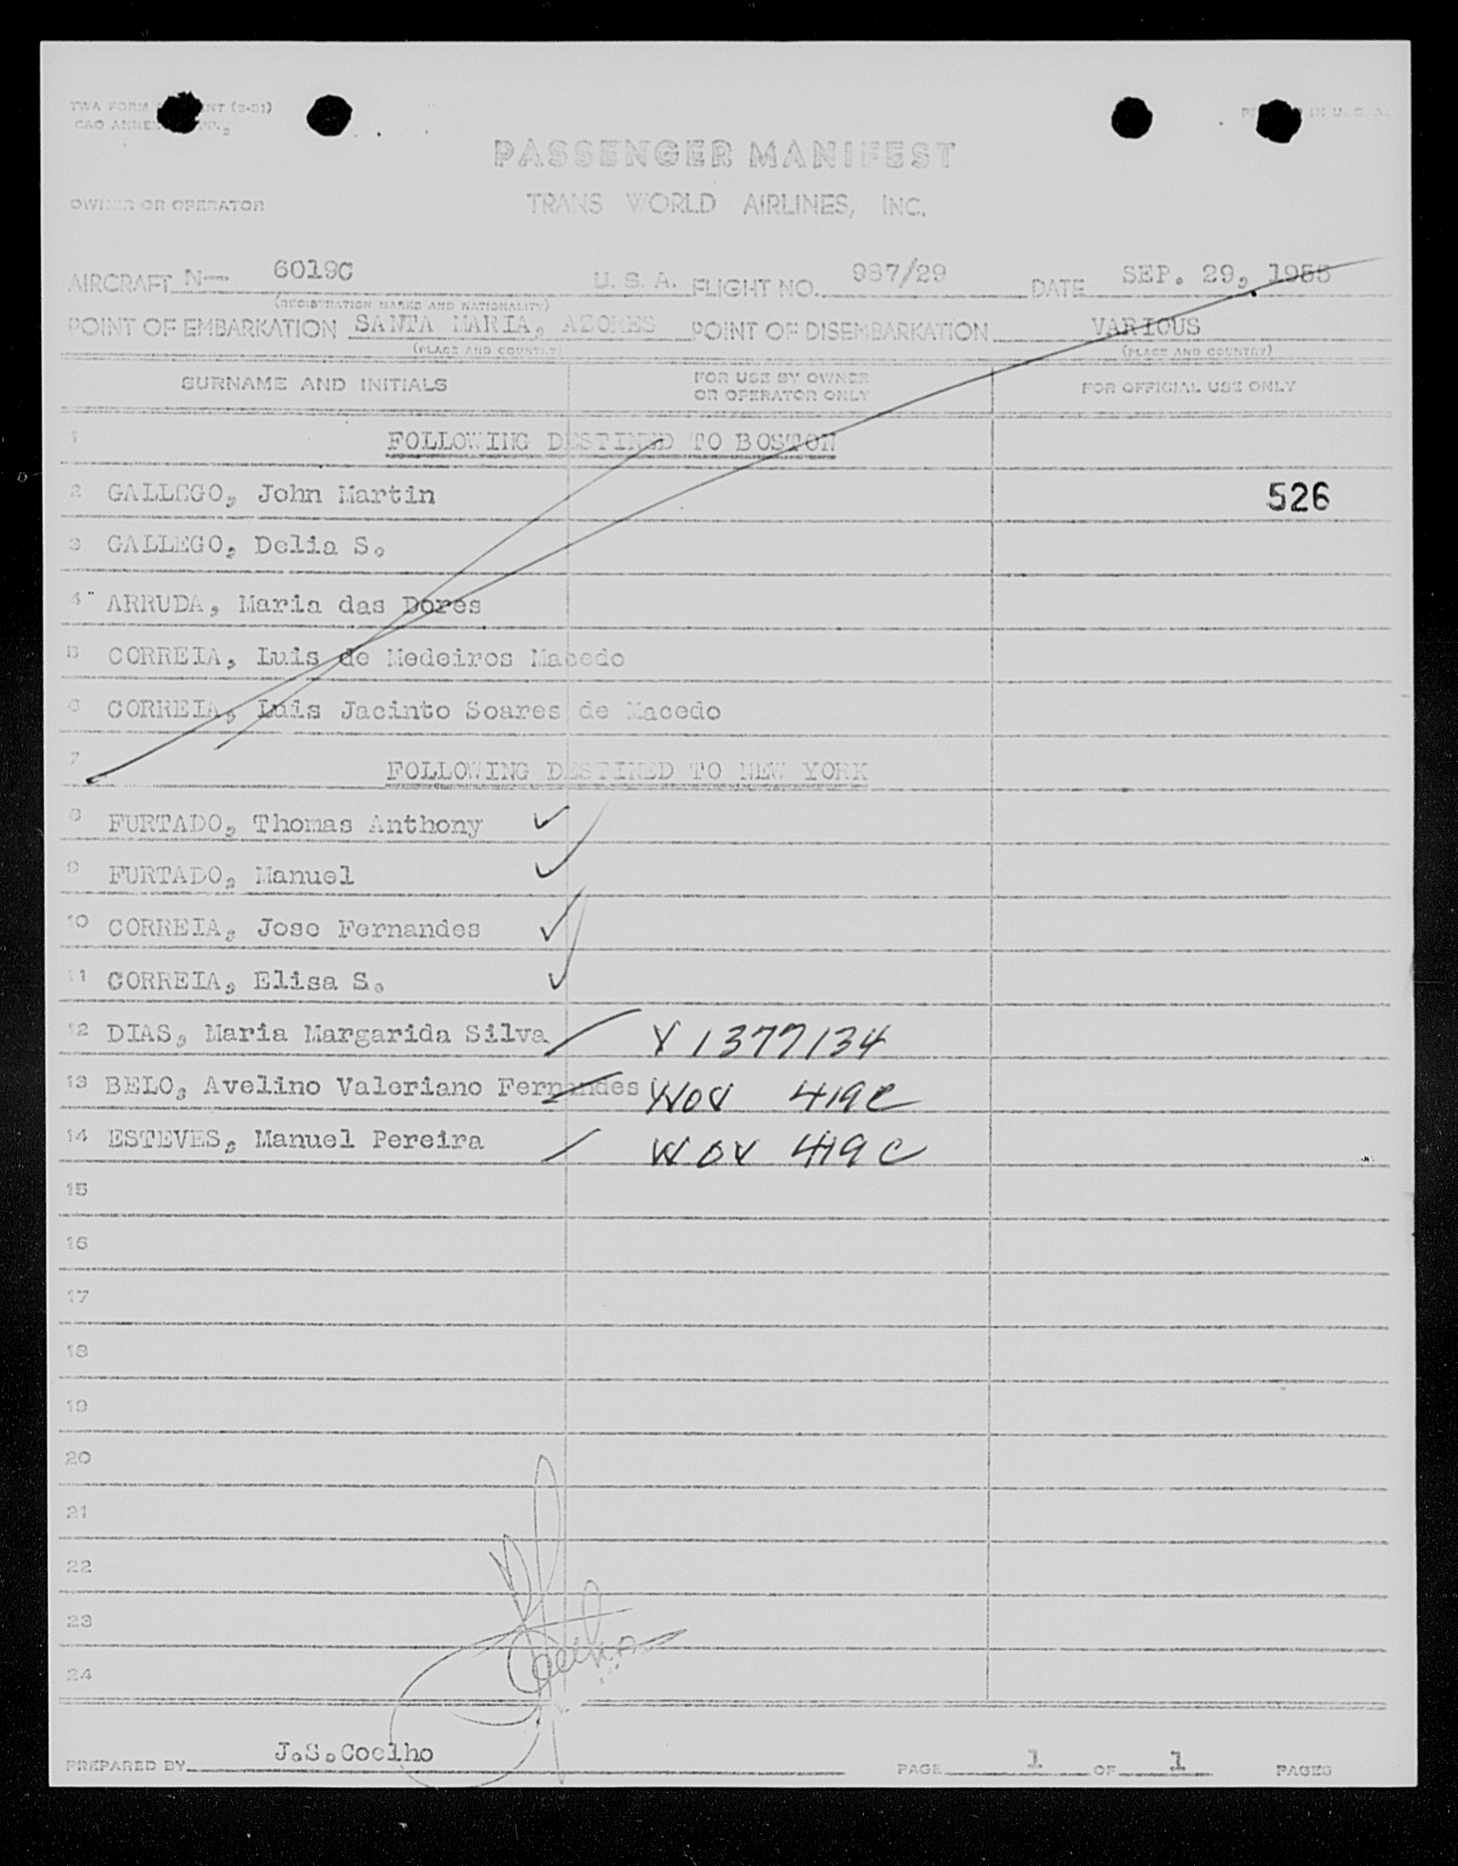 TWA FORM NT (3-51)
CAO ANNEX
PASSENGER MANIFEST
OWNER OR OPERATOR TRANS WORLD AIRLINES, INC.
AIRCRAFT N— 6019C U. S. A. FLIGHT NO. 987/29 DATE SEP. 29, 1955
(REGISTRATION MARKS AND NATIONALITY)
POINT OF EMBARKATION SANTA MARIA, AZORES POINT OF DISEMBARKATION VARIOUS
(PLACE AND COUNTRY) (PLACE AND COUNTRY)
SURNAME AND INITIALS FOR USE BY OWNER OR OPERATOR ONLY FOR OFFICIAL USE ONLY
1 FOLLOWING DESTINED TO BOSTON
2 GALLEGO, John Martin 526
3 GALLEGO, Delia S.
4 ARRUDA, Maria das Dores
5 CORREIA, Luis de Medeiros Macedo
6 CORREIA, Luis Jacinto Soares de Macedo
7 FOLLOWING DESTINED TO NEW YORK
8 FURTADO, Thomas Anthony ✓
9 FURTADO, Manuel ✓
10 CORREIA, Jose Fernandes ✓
11 CORREIA, Elisa S. ✓
12 DIAS, Maria Margarida Silva Y 1377134
13 BELO, Avelino Valeriano Fernandes 419C
14 ESTEVES, Manuel Pereira 419C
15
16
17
18
19
20
21
22
23
24
Coelho
PREPARED BY J.S.Coelho PAGE 1 OF 1 PAGES